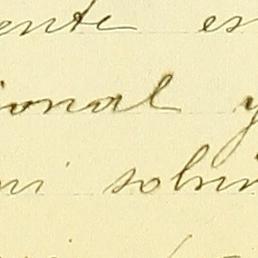 ente es
ional y
mi sobrin